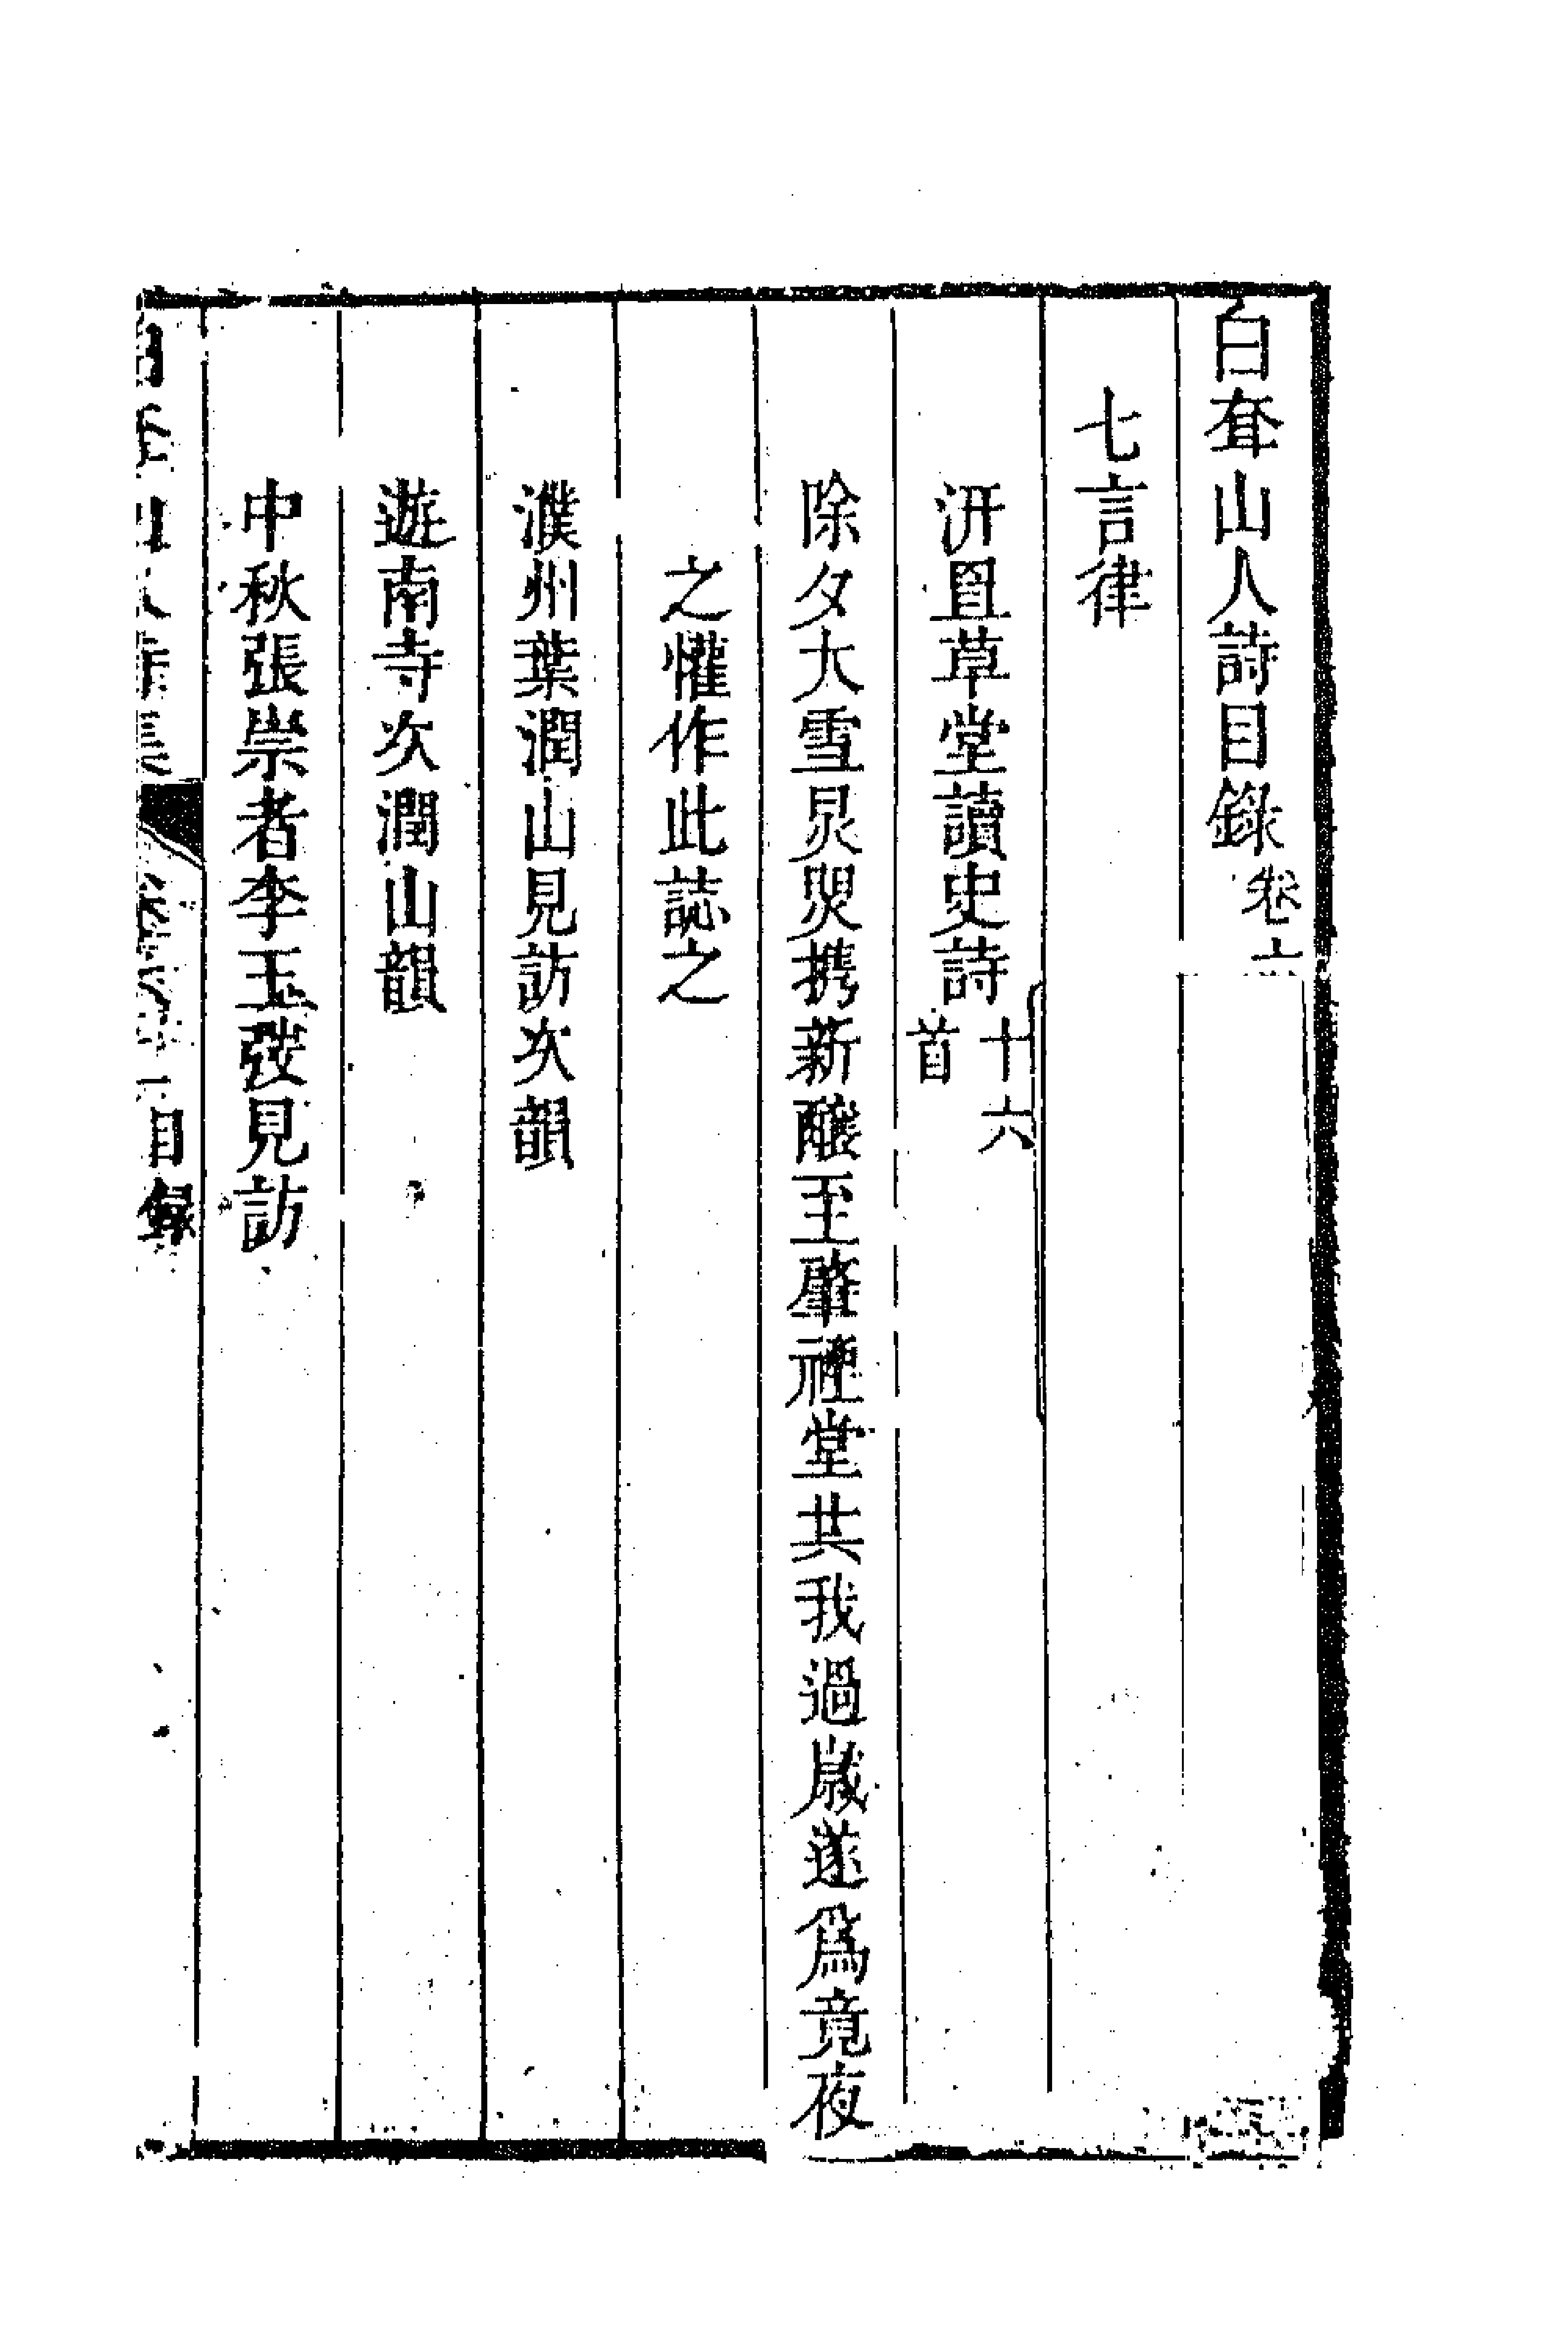 白耷山人詩目錄卷
七言律
汧罝草堂讀史詩十六首
除夕大雪炅煚携新釀至肇禋堂共我過歲遂爲竟夜
之懽作此誌之
濮州葉潤山見訪次韻
遊南寺次潤山韻
中秋張崇者李玉弢見訪
目錄